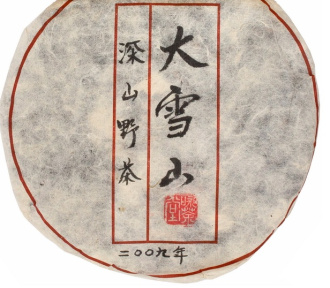 大雪山
深山野茶
二〇〇九年